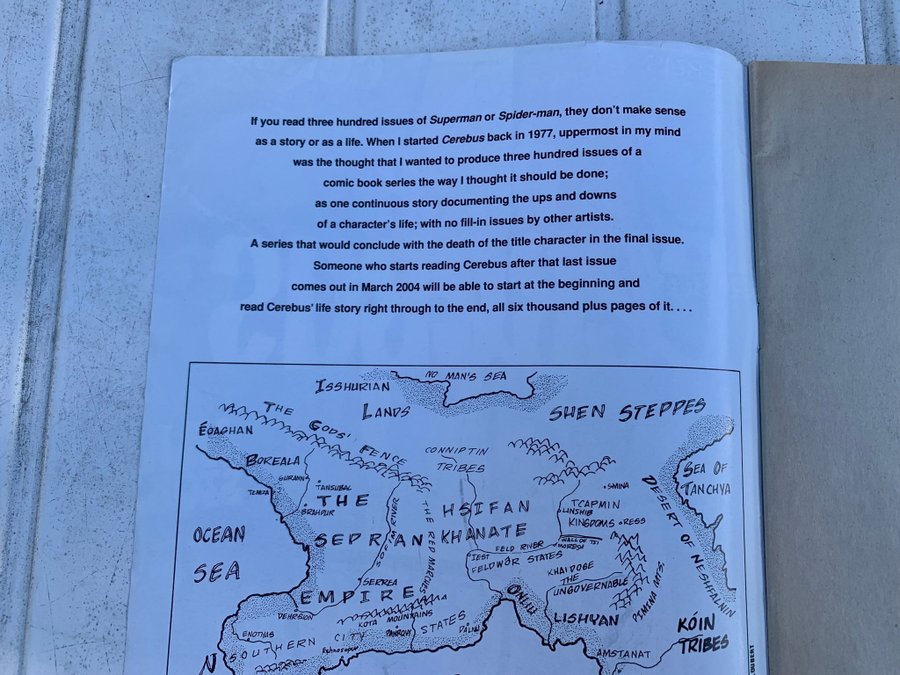 If you read three hundred issues of Superman or Spider-man, they don't make sense
as a story or as a life. When I started Cerebus back in 1977, uppermost in my mind
was the thought that I wanted to produce three hundred issues of a
comic book series the way I thought it should be done;
as one continuous story documenting the ups and downs
of a character's life; with no fill-in issues by other artists.
A series that would conclude with the death of the title character in the final issue.
Someone who starts reading Cerebus after that last issue
comes out in March 2004 will be able to start at the beginning and
read Cerebus' life story right through to the end, all six thousand plus pages of it. . . .
NO MAN'S SEA
ISSHURIAN
LANDS
SHEN STEPPES
THE
GODS'
FENCE
EOAGHAN
CONNIPTIN
TRIBES
BOREALA
SEA OF
TANCHYA
TANSUBAL
SMINA
THE
BRAHPUR
HSIFAN
TCAPMIN
LINSHIB
KINGDOMS
RESS
DESERT OF NESHFALNIN
OCEAN
SEA
SEPRAN
KHANATE
THE RED MARCHES
WALL OF TSI
IEST
FELD RIVER
FELDWAR STATES
KHAIDOGE
THE
UNGOVERNABLE
SERREA
EMPIRE
ONLIU
LISHYAN
KÓIN
TRIBES
KOTA MOUNTAINS
ENOTHIS
SOUTHERN CITY
STATES
AMSTANAT